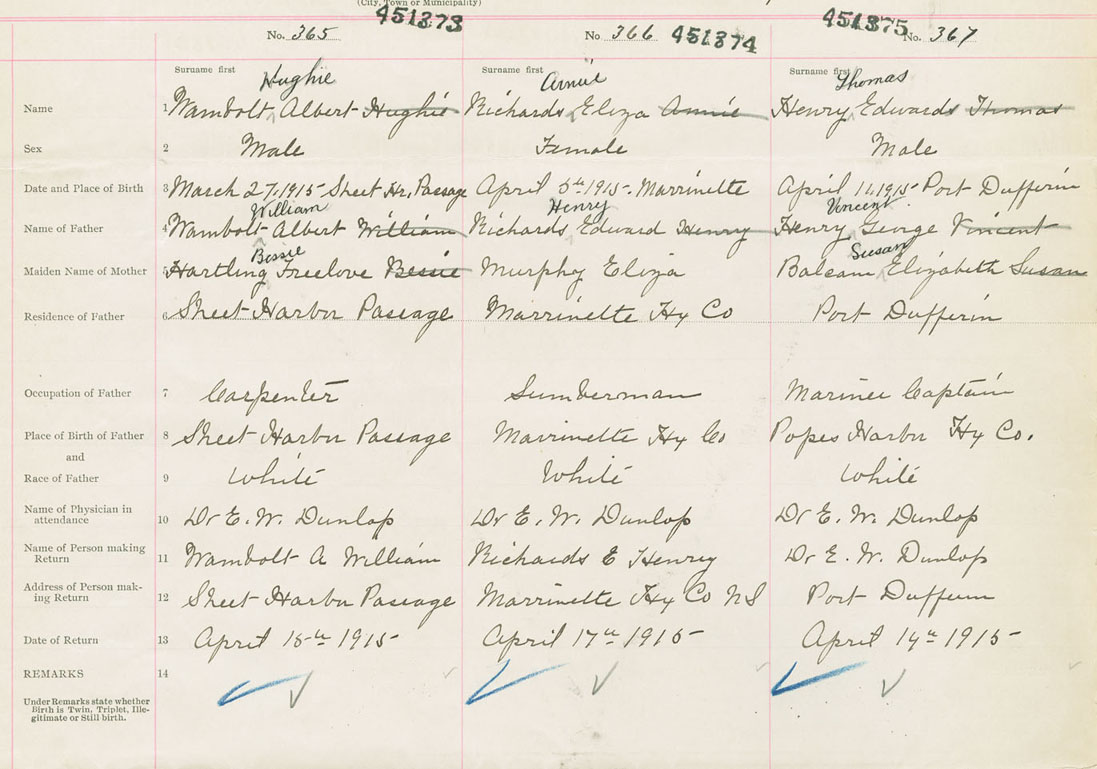 (City, Town or Municipality)
451373 451375
No. 365 No 366 451374 No. 367
Surname first Surname first Surname first
Hughie Annie Thomas
Name 1 Wambolt Albert Hughie Richards Eliza Annie Henry Edwards Thomas
Sex 2 Male Female Male
Date and Place of Birth 3 March 27, 1915 Sheet Hr, Passage April 5th 1915. Marrinette April 11, 1915 Port Dufferin
William Henry Vincent
Name of Father 4 Wambolt Albert William Richards Edward Henry Henry George Vincent
Bessie Susan
Maiden Name of Mother 5 Hartling Freelove Bessie Murphy Eliza Balcam Elizabeth Susan
Residence of Father 6 Sheet Harbor Passage Marrinette Hx Co Port Dufferin
Occupation of Father 7 Carpenter Lumberman Mariner Captain
Place of Birth of Father 8 Sheet Harbor Passage Marrinette Hx Co Popes Harbor Hx Co.
and
Race of Father 9 White White White
Name of Physician in
attendance 10 Dr E. W. Dunlop Dr E. W. Dunlop Dr E. W. Dunlop
Name of Person making
Return 11 Wambolt A William Richards E Henry Dr E. W. Dunlop
Address of Person mak-
ing Return 12 Sheet Harbor Passage Marrinette Hx Co N S Port Dufferin
Date of Return 13 April 15th 1915 April 17th 1915 April 14th 1915
REMARKS 14
Under Remarks state whether
Birth is Twin, Triplet, Ille-
gitimate or Still birth.